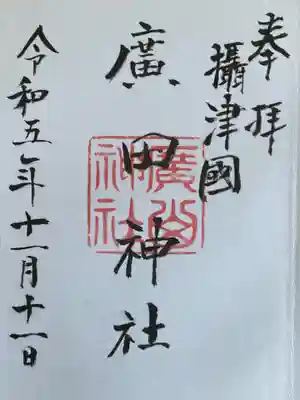 奉拝
攝津國
廣田神社
廣田
神社
令和五年十一月十一日